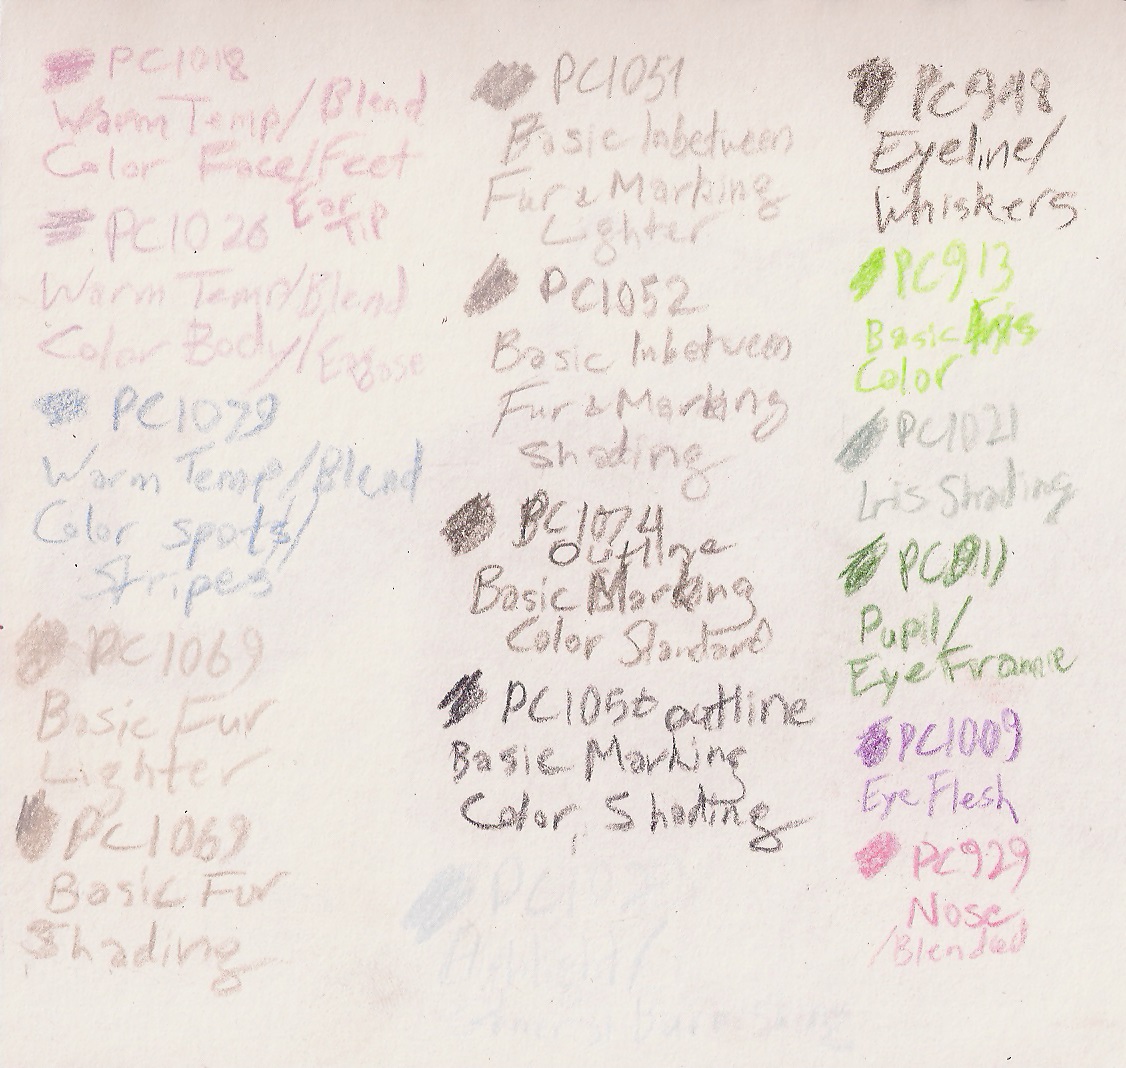 PC1018
Warm Temp/Blend
Color Face/Feet
Ear
Tip
PC1026
Warm Temp/Blend
Color Body/
PC1079
Warm Temp/Blend
Color spots/
Stripes
PC1069
Basic Fur
Lighter
PC1069
Basic Fur
Shading
PC1051
Basic Inbetween
Fur & Marking
Lighter
PC1052
Basic Inbetween
Fur & Marking
Shading
PC1074
Outline
Basic Marking
Color Standard
PC1056 outline
Basic Marking
Color, Shading
PC948
Eyeline/
Whiskers
PC913
Basic Iris
Color
PC1021
Iris Shading
PC911
Pupil/
Eye Frame
PC1009
Eye Flesh
PC929
Nose
/Blended